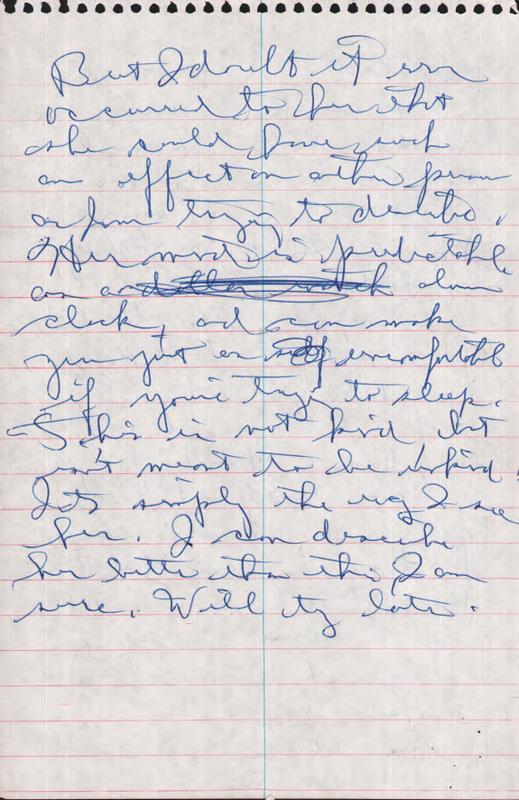 But I doubt it ever
occurred to her that
she could have such
an effect on other person
as I am trying to describe.
Her mood is predictable
as an alarm
clock, and can make
you just as uncomfortable
if you're trying to sleep.
This is not kind but
isn't meant to be unkind,
Its simply the way I see
her. I can describe
her better than this, I am
sure. Will try later.